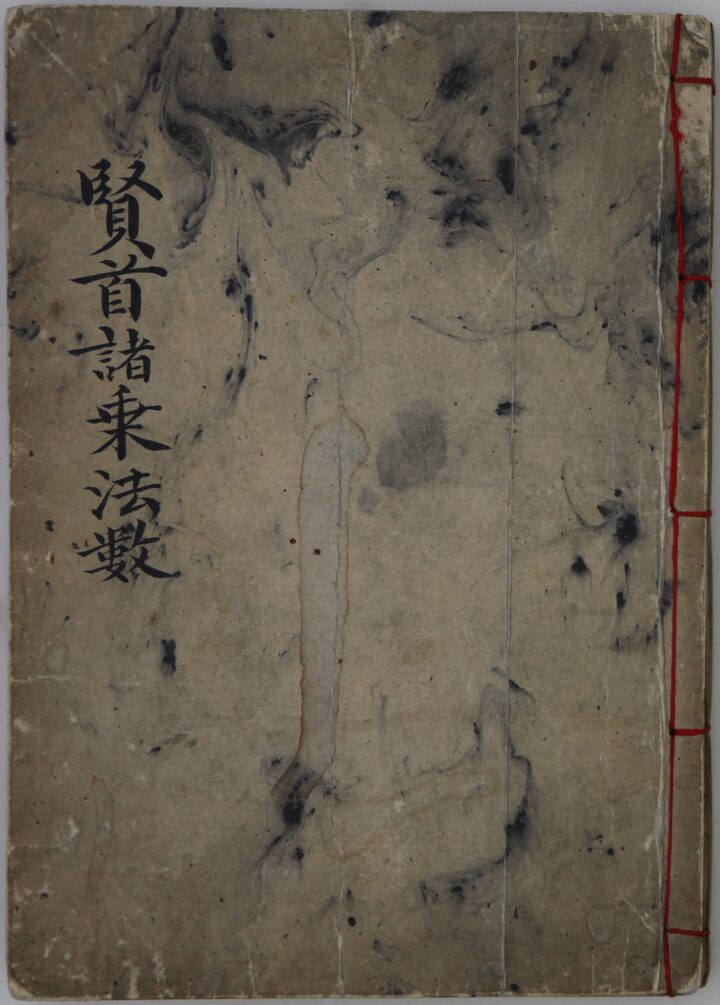 賢首諸乗法數